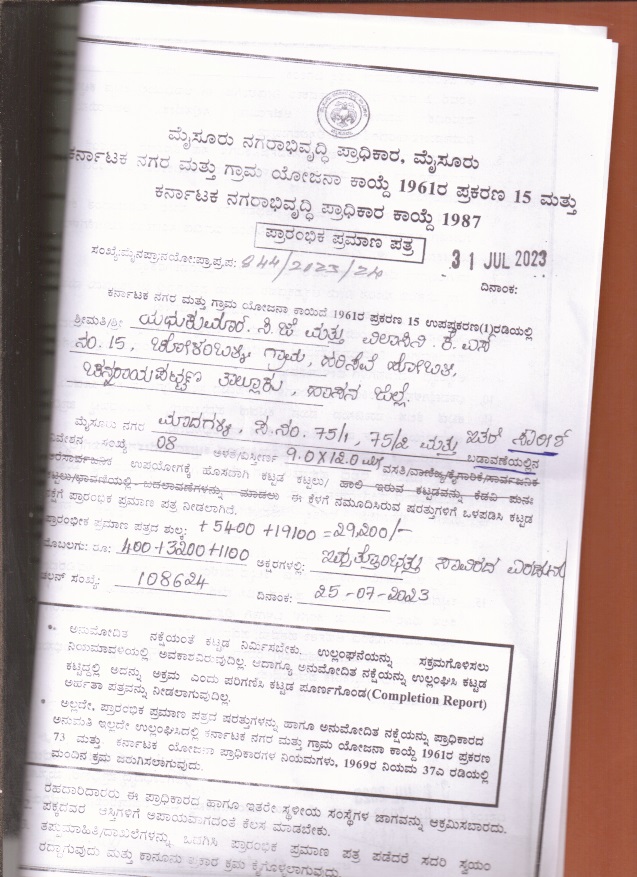 ಮೈಸೂರು ನಗರಾಭಿವೃದ್ಧಿ ಪ್ರಾಧಿಕಾರ, ಮೈಸೂರು
ಕರ್ನಾಟಕ ನಗರ ಮತ್ತು ಗ್ರಾಮ ಯೋಜನಾ ಕಾಯ್ದೆ 1961ರ ಪ್ರಕರಣ 15 ಮತ್ತು
ಕರ್ನಾಟಕ ನಗರಾಭಿವೃದ್ಧಿ ಪ್ರಾಧಿಕಾರ ಕಾಯ್ದೆ 1987
ಪ್ರಾರಂಭಿಕ ಪ್ರಮಾಣ ಪತ್ರ
ಸಂಖ್ಯೆ:ಮೈನಪ್ರಾ:ನಯೋ:ಪ್ರಾ.ಪ್ರ.ಪ: 844/2023/24
31 JUL 2023
ದಿನಾಂಕ:
ಕರ್ನಾಟಕ ನಗರ ಮತ್ತು ಗ್ರಾಮ ಯೋಜನಾ ಕಾಯಿದೆ 1961ರ ಪ್ರಕರಣ 15 ಉಪಪ್ರಕರಣ(1)ರಡಿಯಲ್ಲಿ
ಶ್ರೀಮತಿ/ಶ್ರೀ ಯಧುಕುಮಾರ್. ಸಿ.ಜೆ ಮತ್ತು ವಿಲಾಸಿನಿ. ಕೆ.ಎಸ್
ನಂ.15, ಗ್ರಾಮ, ಹಿರಿಸೇವೆ ಹೋಬಳಿ,
ಚನ್ನರಾಯಪಟ್ಟಣ ತಾಲ್ಲೂಕು, ಹಾಸನ ಜಿಲ್ಲೆ.
ಮೈಸೂರು ನಗರ ಮಾದಗಳ್ಳಿ, ಸ.ನಂ. 75/1, 75/2 ಮತ್ತು ಇತರೆ
ನಿವೇಶನ ಸಂಖ್ಯೆ 08 ಅಳತೆ/ವಿಸ್ತೀರ್ಣ 9.0X12.0 ಮೀ ಬಡಾವಣೆಯಲ್ಲಿನ
ವಸತಿ/ವಾಣಿಜ್ಯ/ಕೈಗಾರಿಕೆ/ಸಾರ್ವಜನಿಕ
ಅರೆಸಾರ್ವಜನಿಕ ಉಪಯೋಗಕ್ಕೆ ಹೊಸದಾಗಿ ಕಟ್ಟಡ ಕಟ್ಟಲು/ ಹಾಲಿ ಇರುವ ಕಟ್ಟಡವನ್ನು ಕೆಡವಿ ಪುನಃ
ಕಟ್ಟಲು/ಭಾವಣೆಯಲ್ಲಿ ಬದಲಾವಣೆಗಳನ್ನು ಮಾಡಲು ಈ ಕೆಳಗೆ ನಮೂದಿಸಿರುವ ಷರತ್ತುಗಳಿಗೆ ಒಳಪಡಿಸಿ ಕಟ್ಟಡ
ಪ್ರಾರಂಭಿಕ ಪ್ರಮಾಣ ಪತ್ರ ನೀಡಲಾಗಿದೆ.
ಪ್ರಾರಂಭಿಕ ಪ್ರಮಾಣ ಪತ್ರದ ಶುಲ್ಕ: +5400 +19100 =29,200/-
ಮೊಬಲಗು: ರೂ: 400+3200+1100 ಅಕ್ಷರಗಳಲ್ಲಿ: ಇಪ್ಪತ್ತೊಂಭತ್ತು ಸಾವಿರದ
ಚಲನ್ ಸಂಖ್ಯೆ: 108624 ದಿನಾಂಕ: 25-07-2023
• ಅನುಮೋದಿತ ನಕ್ಷೆಯಂತೆ ಕಟ್ಟಡ ನಿರ್ಮಿಸಬೇಕು. ಉಲ್ಲಂಘನೆಯನ್ನು ಸಕ್ರಮಗೊಳಿಸಲು
ನಿಯಮಾವಳಿಯಲ್ಲಿ ಅವಕಾಶವಿರುವುದಿಲ್ಲ. ಅದಾಗ್ಯೂ ಅನುಮೋದಿತ ನಕ್ಷೆಯನ್ನು ಉಲ್ಲಂಘಿಸಿ ಕಟ್ಟಡ
ಕಟ್ಟಿದ್ದಲ್ಲಿ ಅದನ್ನು ಅಕ್ರಮ ಎಂದು ಪರಿಗಣಿಸಿ ಕಟ್ಟಡ ಪೂರ್ಣಗೊಂಡ(Completion Report)
ಅರ್ಹತಾ ಪತ್ರವನ್ನು ನೀಡಲಾಗುವುದಿಲ್ಲ.
• ಅಲ್ಲದೇ, ಪ್ರಾರಂಭಿಕ ಪ್ರಮಾಣ ಪತ್ರದ ಷರತ್ತುಗಳನ್ನು ಹಾಗೂ ಅನುಮೋದಿತ ನಕ್ಷೆಯನ್ನು ಪ್ರಾಧಿಕಾರದ
ಅನುಮತಿ ಇಲ್ಲದೇ ಉಲ್ಲಂಘಿಸಿದಲ್ಲಿ ಕರ್ನಾಟಕ ನಗರ ಮತ್ತು ಗ್ರಾಮ ಯೋಜನೆ ಕಾಯ್ದೆ 1961ರ ಪ್ರಕರಣ
73 ಮತ್ತು ಕರ್ನಾಟಕ ಯೋಜನಾ ಪ್ರಾಧಿಕಾರಗಳ ನಿಯಮಗಳು, 1969ರ ನಿಯಮ 37ಎ ರಡಿಯಲ್ಲಿ
ಮುಂದಿನ ಕ್ರಮ ಜರುಗಿಸಲಾಗುವುದು.
ರಹದಾರಿದಾರರು ಈ ಪ್ರಾಧಿಕಾರದ ಹಾಗೂ ಇತರೇ ಸ್ಥಳೀಯ ಸಂಸ್ಥೆಗಳ ಜಾಗವನ್ನು ಆಕ್ರಮಿಸಬಾರದು.
ಪಕ್ಕದವರ ಆಸ್ತಿಗಳಿಗೆ ಅಪಾಯವಾಗದಂತೆ ಕೆಲಸ ಮಾಡಬೇಕು.
ತಪ್ಪುಮಾಹಿತಿ/ದಾಖಲೆಗಳನ್ನು ಒದಗಿಸಿ ಪ್ರಾರಂಭಿಕ ಪ್ರಮಾಣ ಪತ್ರ ಪಡೆದರೆ ಸದರಿ ಸ್ವಯಂ
ರದ್ದಾಗುವುದು ಮತ್ತು ಕಾನೂನು ಪ್ರಕಾರ ಕ್ರಮ ಕೈಗೊಳ್ಳಲಾಗುವುದು.